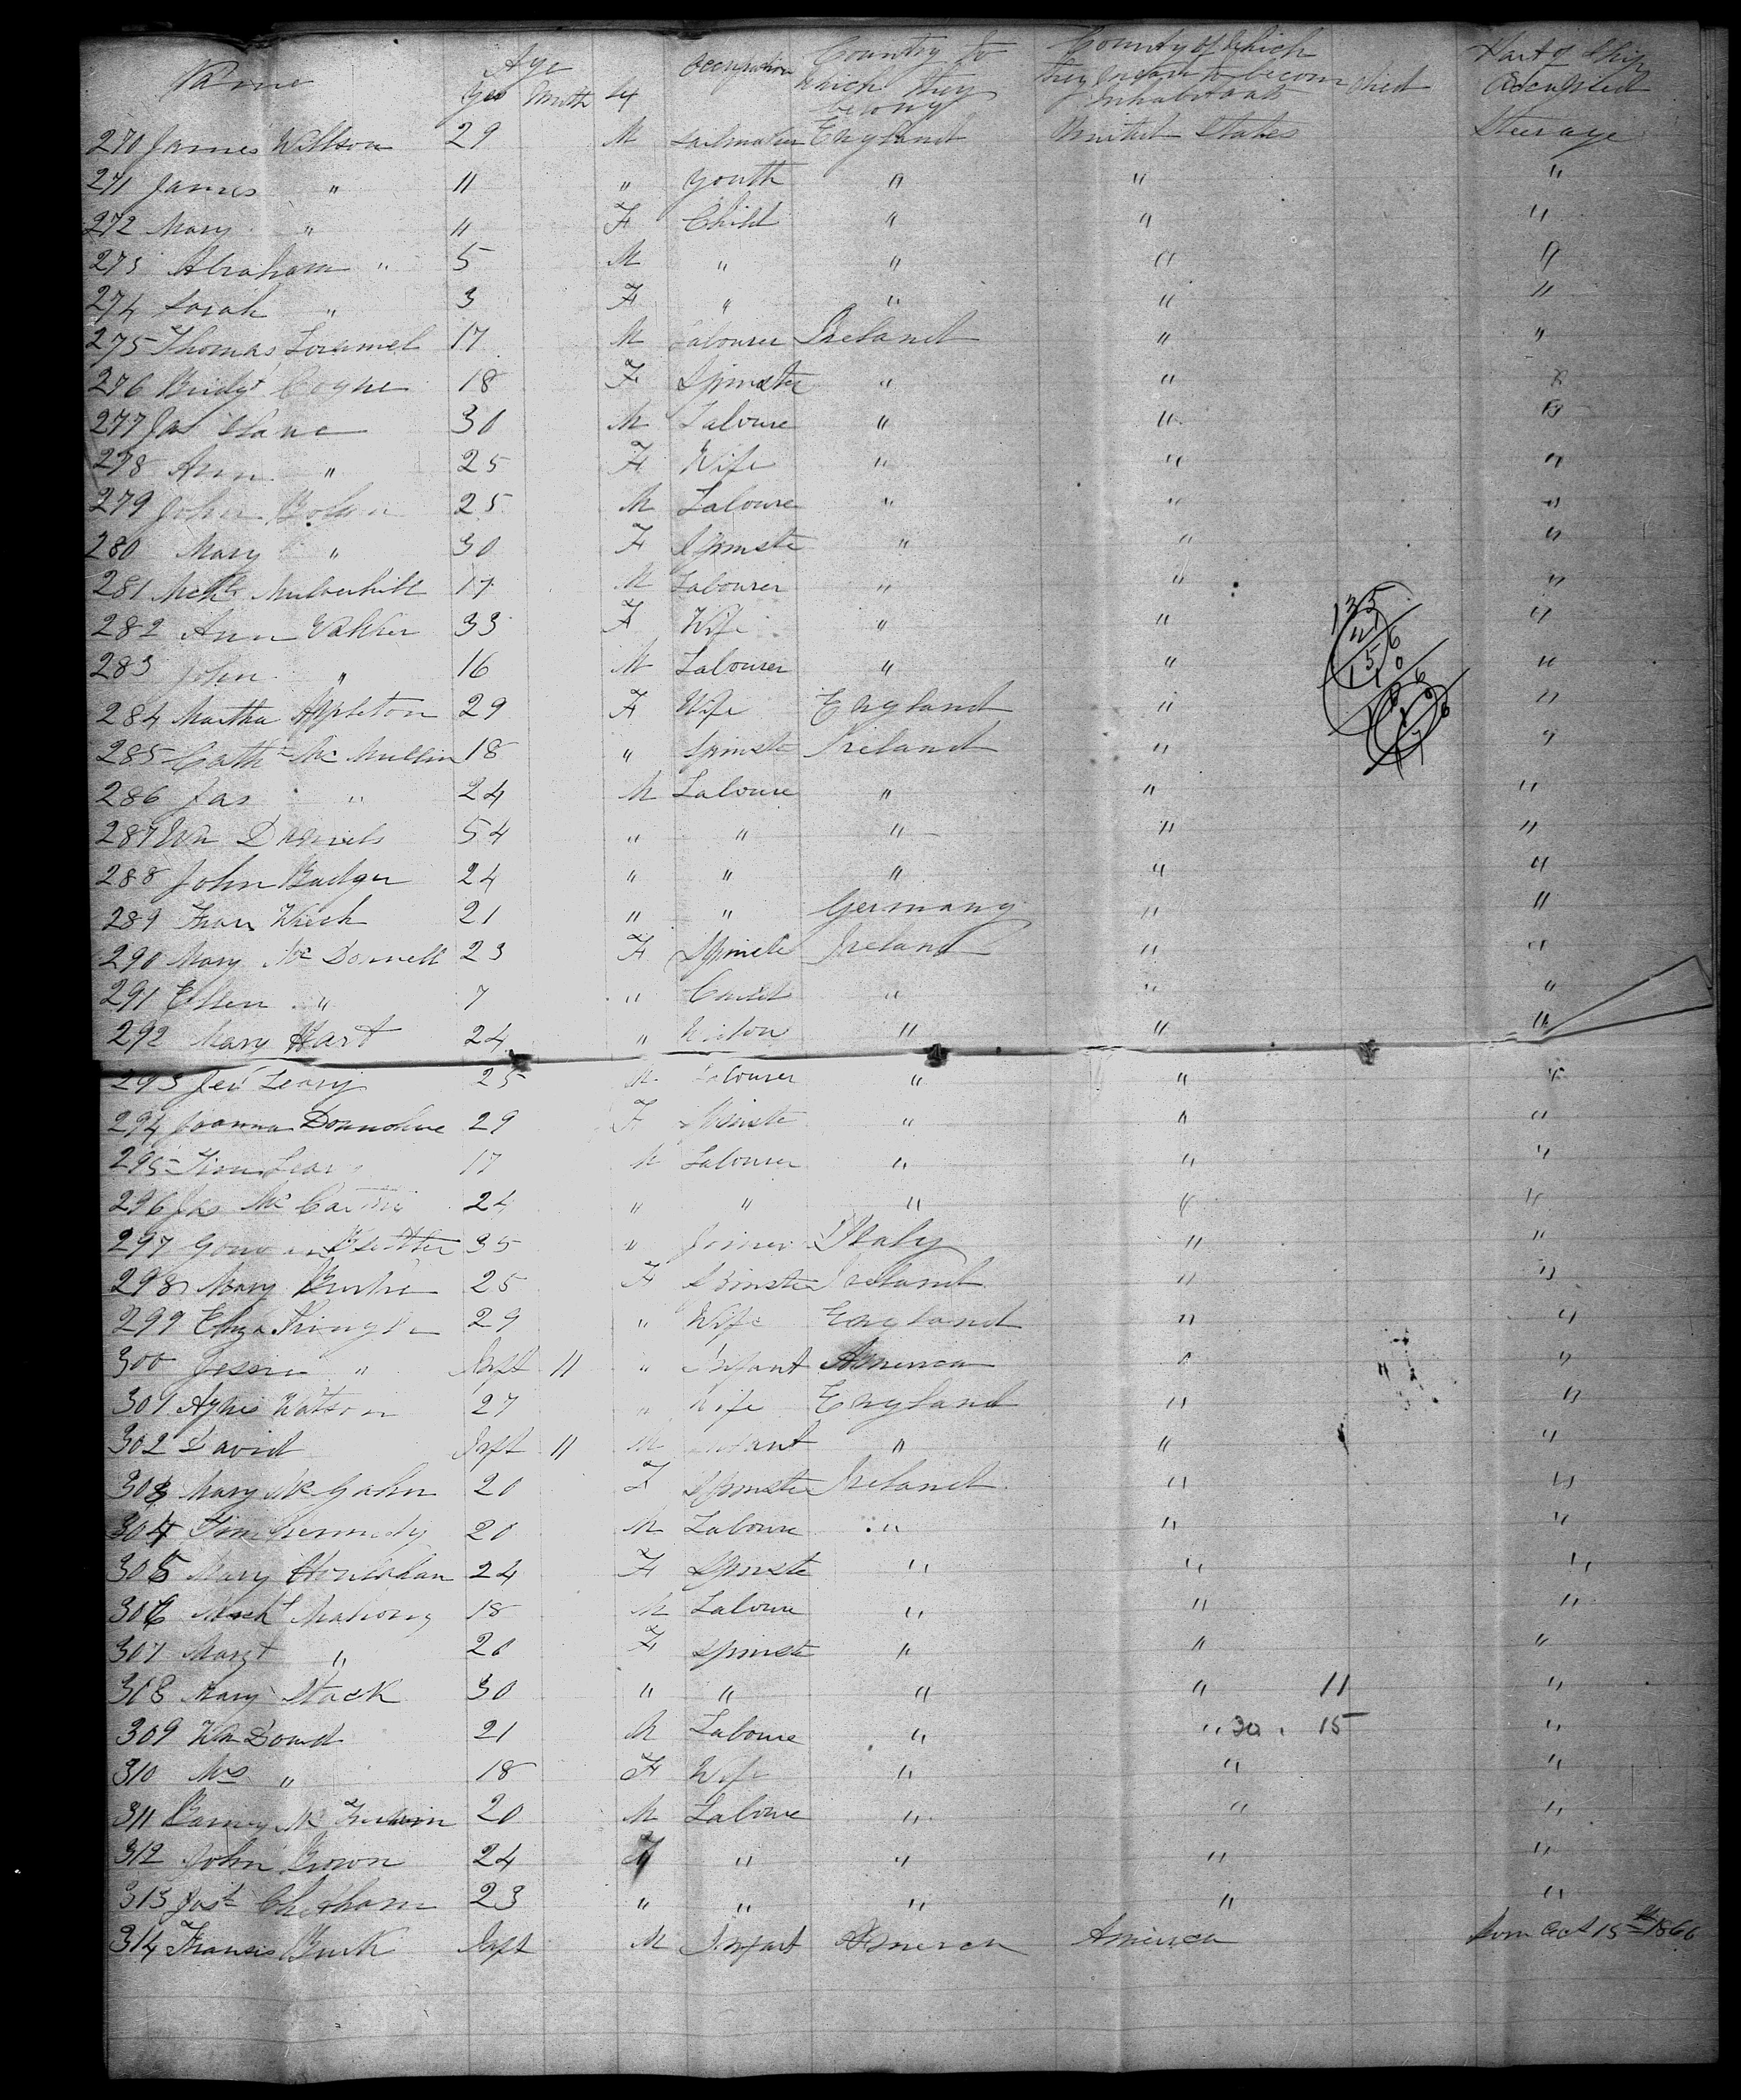 Name Age Yrs Mnth Sx Occupation Country to which they belong Country of which they intend to become Inhabitants Died Part of Ship Occupied
270 James Willson 29 M Sailmaker England United States Steerage
271 James " 11 " Youth " " "
272 Mary " 11 F Child " " "
273 Abraham " 5 M " " " "
274 Sarah " 3 F " " " "
275 Thomas 17 M Labourer Ireland " "
276 Bridgt Coyne 18 F Spinster " " "
277 Jas 30 M Laboure " " "
278 Ann " 25 F Wife " " "
279 John 25 M Laboure " " "
280 Mary " 30 F Spinste " " "
281 Mulverhill 17 M Labourer " " "
282 Ann 33 F Wife " " "
283 John " 16 M Labourer " " "
284 Martha Appleton 29 F Wife England " "
285 Cathn Mc Mullin 18 " Spinste Ireland " "
286 Jas " 24 M Laboure " " "
287 Wm Daniels 54 " " " " "
288 John Badger 24 " " " " "
289 21 " " Germany " "
290 Mary Mc Donnell 23 F Spinste Ireland " "
291 Ellen " 7 " Child " " "
292 Mary Hart 24 " Widow " " "
293 Jer Leary 25 M Labourer " " "
294 Joanna Donnohue 29 F Spinste " " "
295 Tim Leary 17 M Labourer " " "
296 Jas Mc 24 " " " " "
297 35 " Joiner Italy " "
298 Mary Burke 25 F Spinster Ireland " "
299 Eliza 29 " Wife England " "
300 Jessie " Inft 11 " Infant America " "
301 Agnes Watson 27 " Wife England " "
302 David Inft 11 M Infant " " "
303 Mary McGahn 20 F Spinster Ireland " "
304 Tim Kennedy 20 M Laboure " " "
305 Mary 24 F Spinste " " "
306 Mich Mahony 18 M Laboure " " "
307 Margt " 20 F Spinste " " "
308 Mary Stack 30 " " " " 11 "
309 Wm Dowd 21 M Laboure " " 30 15 "
310 Mrs " 18 F Wife " " "
311 Barney Mc 20 M Laboure " " "
312 John Brown 24 " " " "
313 23 " " " " "
314 Francis Burk Inft M Infant America America Born Oct 15th 1866